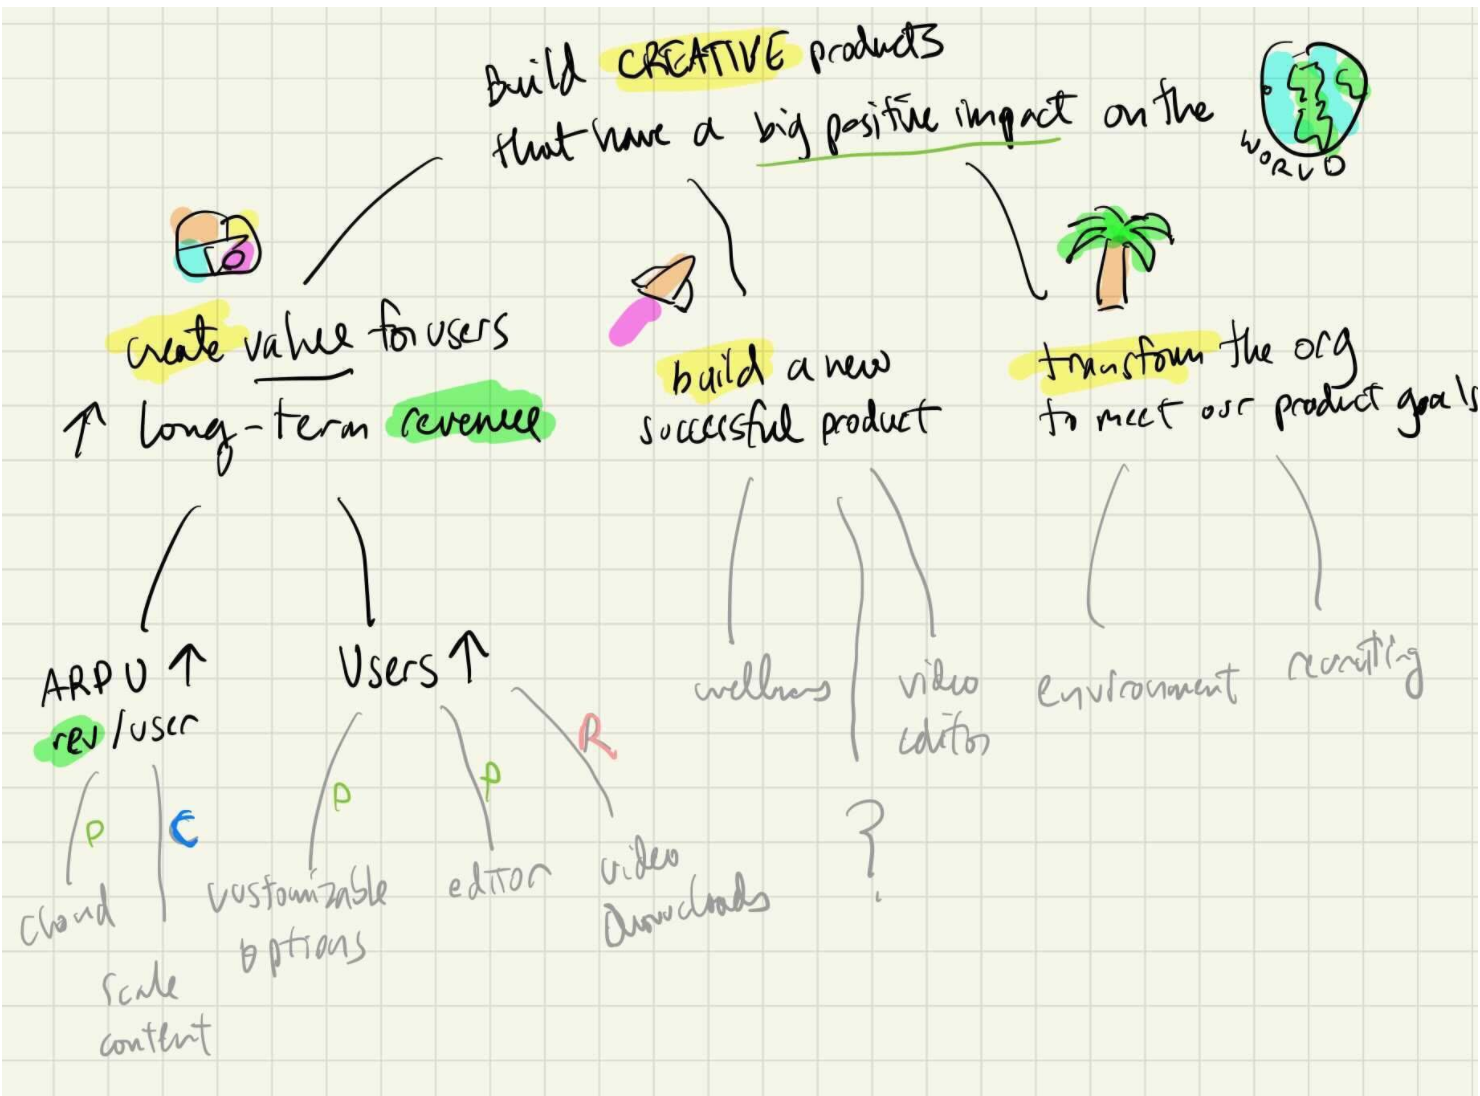 Build CREATIVE products
that have a big positive impact on the
WORLD
create value for users
↑ long-term revenue
build a new
successful product
transform the org
to meet our product goals
ARPU ↑
rev/user
Users ↑
wellness
video
editor
environment
recruiting
P
C
P
P
R
?
cloud
scale
content
customizable
options
editor
video
downloads